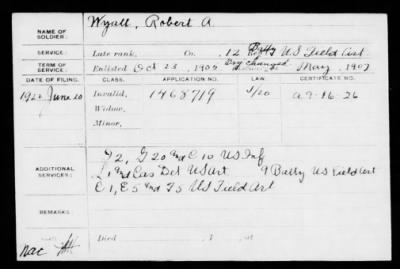 NAME OF SOLDIER: Wyatt, Robert A.
SERVICE: Late rank, Co. 12 Batty U.S. Field Art
TERM OF SERVICE: Enlisted Oct 23, 1905 Dischanged May, 1907
DATE OF FILING. CLASS. APPLICATION NO. LAW. CERTIFICATE NO.
192 June 20 Invalid, 1468719 J/20 a 9-16-26
Widow,
Minor,
ADDITIONAL SERVICES: F 2, G 20 and C 10 US Inf
L, 1 and Cas Det US Art 9 Batty US Field Art
C 1, E 5 and F 5 US Field Art
REMARKS:
Died , 1 , at
nac